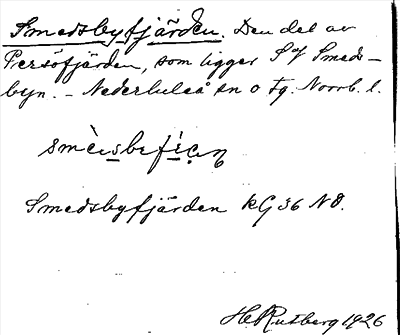 Smedsbyfjärden. Den del av
Persöfjärden, som ligger S of Smeds-
byn. - Nederluleå sn o tg. Norrb. l.
Smedsbyfjärden KG 36 NO.
H Rutberg 1926